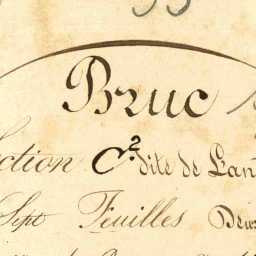 Bruc
Section C.2 dite de Lan
Sept Feuilles Deux